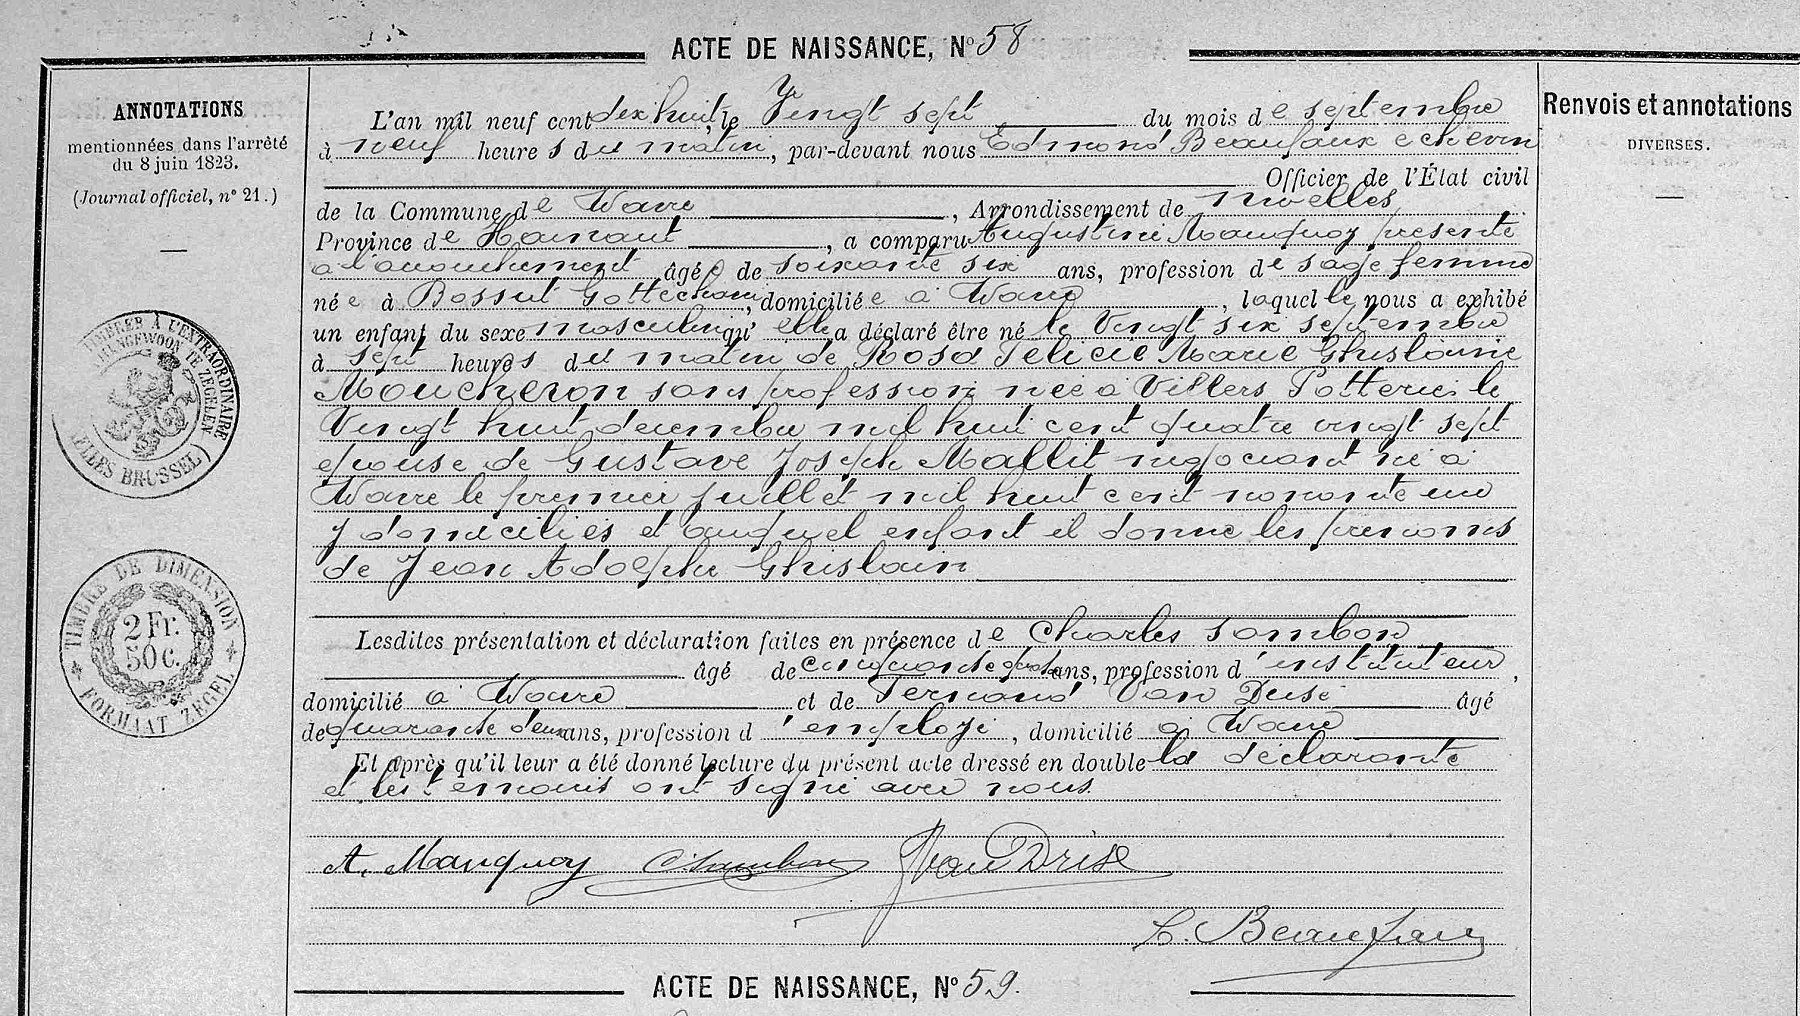 ACTE DE NAISSANCE, N° 58
ANNOTATIONS
mentionnées dans l'arrêté
du 8 juin 1823.
(Journal officiel, n° 21.)
Renvois et annotations
DIVERSES.
L'an mil neuf cent dix huit, le Vingt sept du mois de septembre
à neuf heures du matin, par-devant nous Edmond Beaufaux echevin
Officier de l'État civil
de la Commune de Wavre, Arrondissement de nivelles
Province de Hainaut, a comparu Augustine Mauquoy présente
a l'accouchement âgée de soixante six ans, profession de sage femme
née à Bossut Gottechain, domiciliée a Wavre, laquelle nous a exhibé
un enfant du sexe masculin qu'elle a déclaré être né le Vingt six septembre
à sept heures du matin de Rosa Felicie Marie Ghislaine
Moucheron sans profession née a Villers Potterie le
Vingt huit decembre mil huit cent quatre vingt sept
epouse de Gustave Joseph Mallet negociant né a
Wavre le premier juillet mil huit cent nonante un
y domiciliés et auquel enfant il donne les prenoms
de Jean Adolphe Ghislain
Lesdites présentation et déclaration faites en présence de Charles Sambon
âgé de cinquante quatre ans, profession d'instituteur,
domicilié a Wavre et de Fernand Van Drise âgé
de quarante deux ans, profession d'employé, domicilié a Wavre
Et après qu'il leur a été donné lecture du présent acte dressé en double la déclarante
et les temouis ont signé avec nous.
A. Mauquoy CSambon FVan Drise
E. Beaufaux
TIMBRE DE DIMENSION
2 Fr.
50 c.
FORMAAT ZEGEL
ACTE DE NAISSANCE, N° 59.